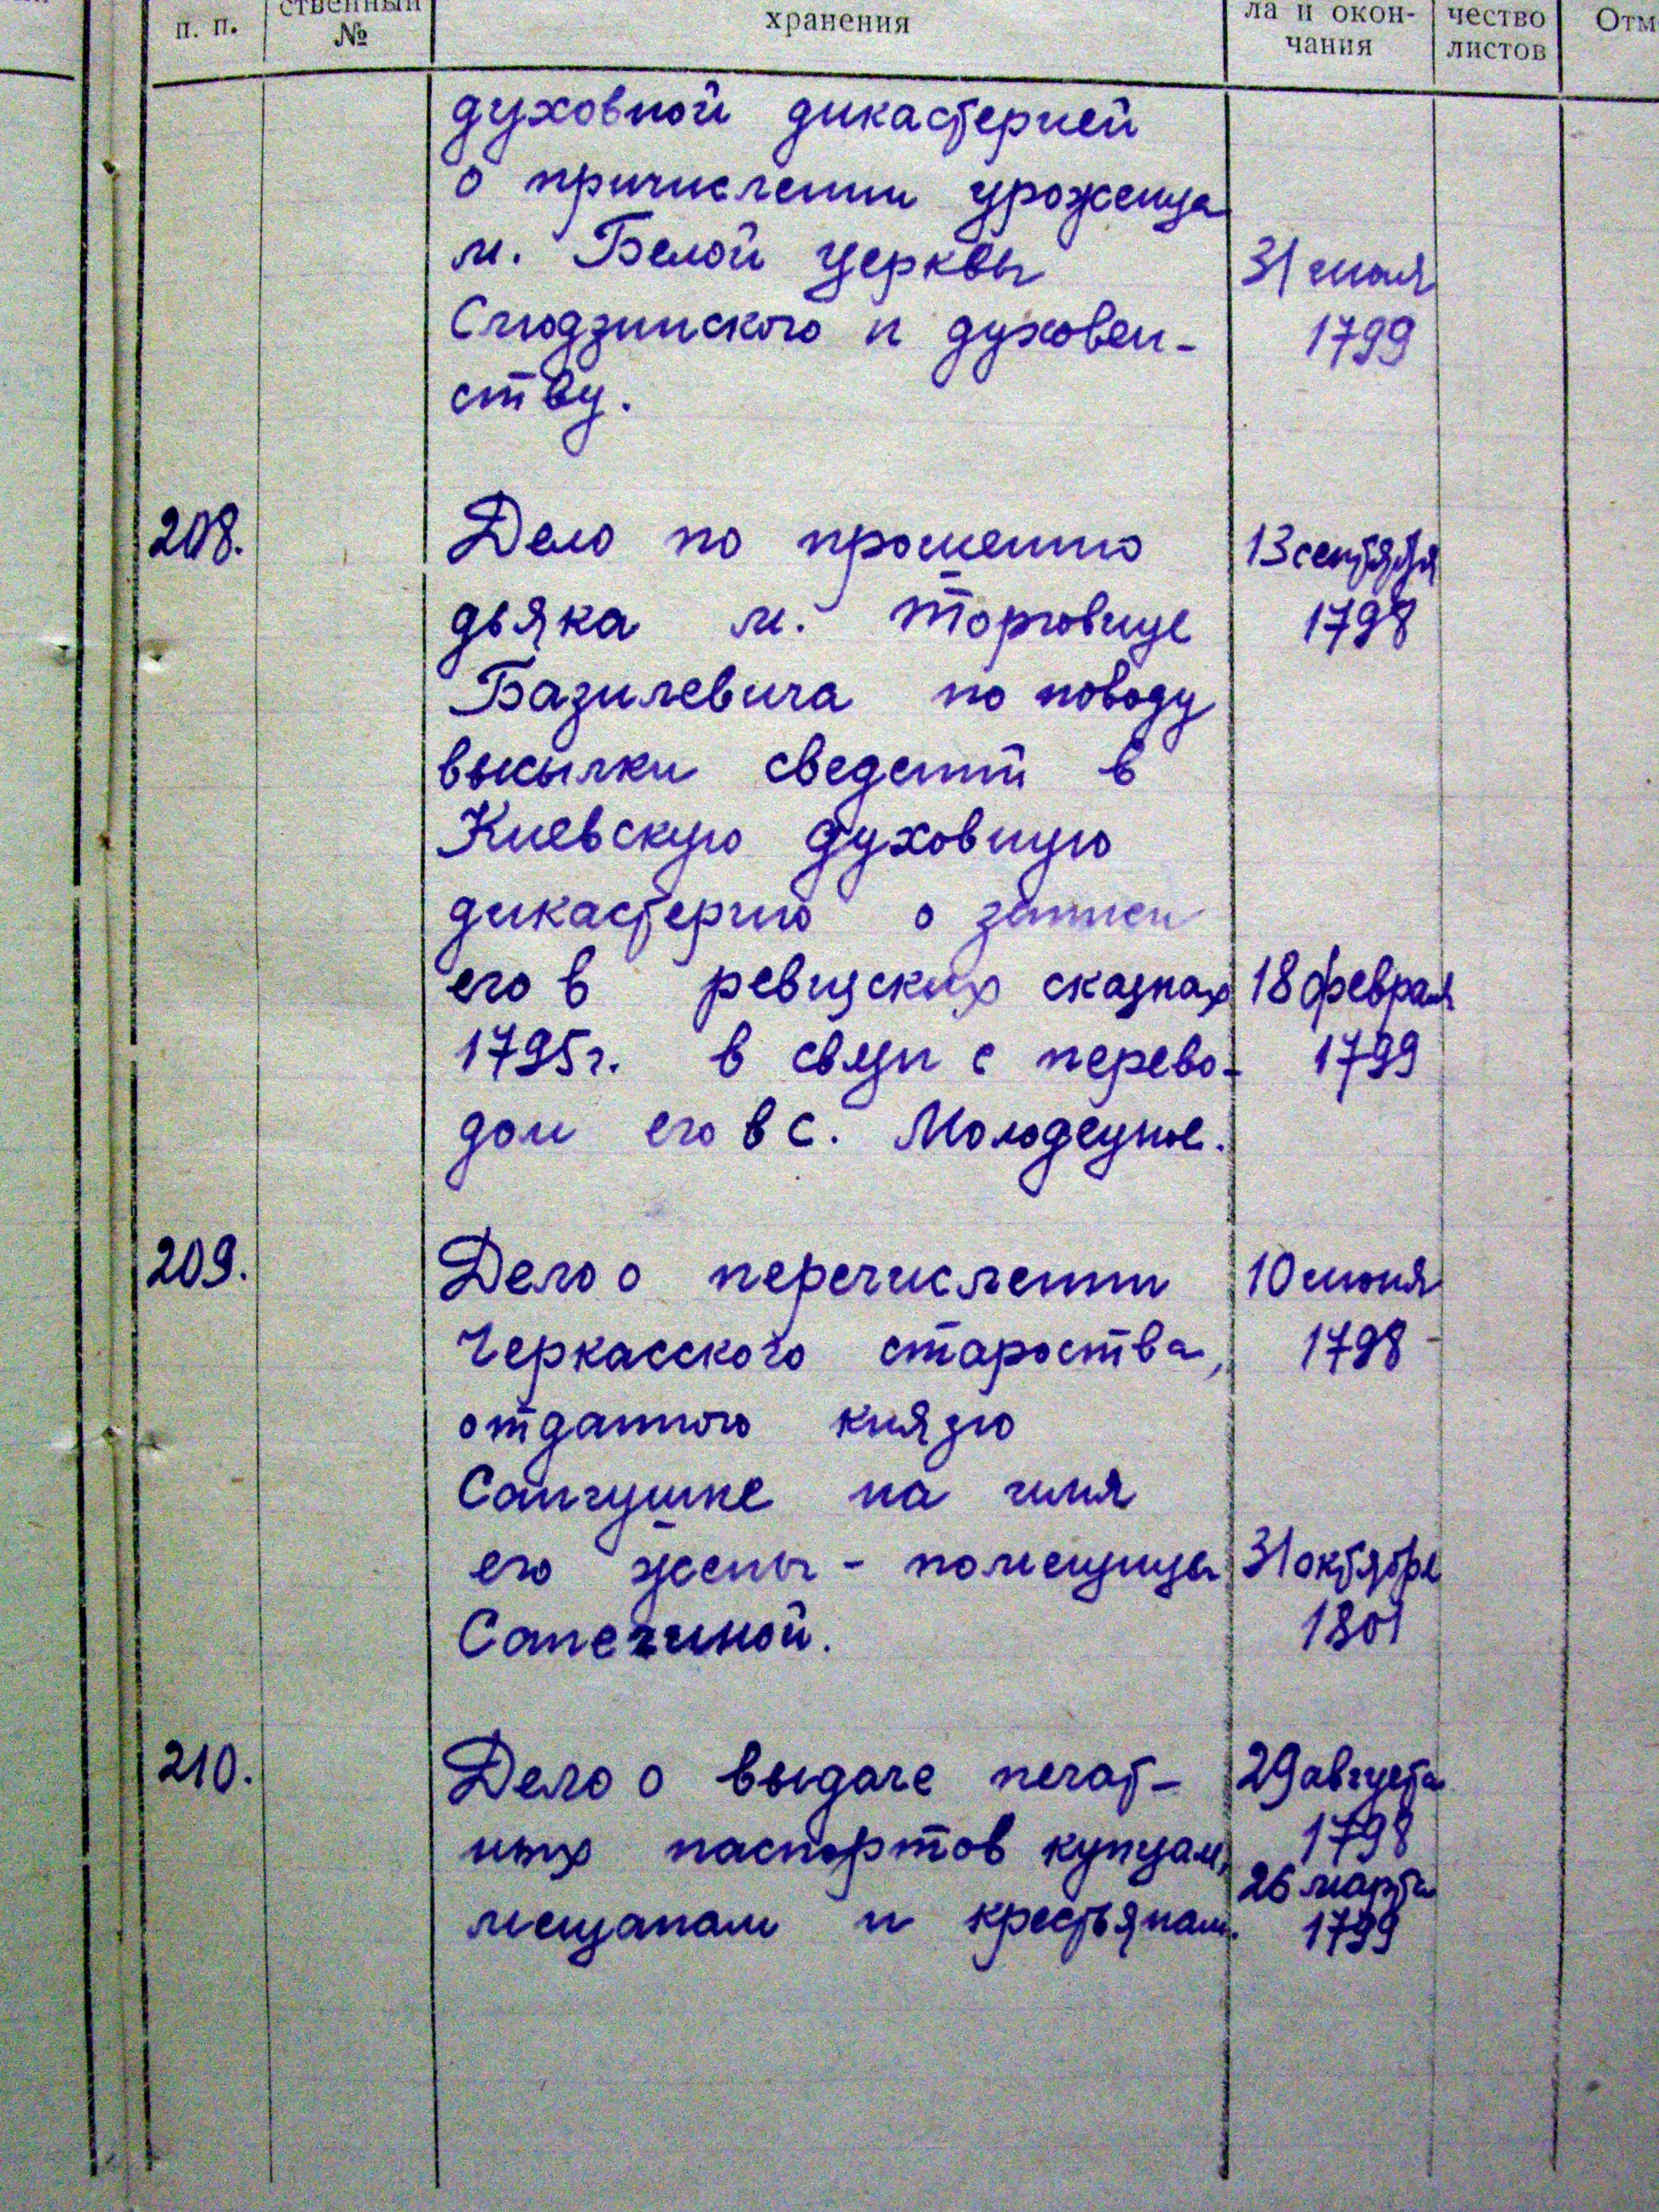 п. п.
ственный
№
хранения
ла и окон-
чания
чество
листов
Отм
духовной дикастерией
о причислении уроженца
м. Белой церквы
31 июля
Слюдзинского к духовен-
1799
ству.
208.
Дело по прошению
13 сентября
дьяка м. Торговице
1798
Базилевича по поводу
высылки сведений в
Киевскую духовную
дикастерию о записи
его в ревизских сказках
18 февраля
1795г. в связи с перево-
1799
дом его в с. Молодецкое.
209.
Дело о перечислении
10 июня
Черкасского староства,
1798
отданного князю
Сангушке на имя
его жены - помещицы
31 октября
Сапежиной.
1801
210.
Дело о выдаче печат-
29 августа
ных паспортов купцам,
1798
26 марта
мещанам и крестьянам.
1799